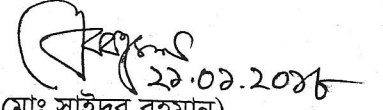 ২১.০১.২০১৮
(মোঃ সাইদুর রহমান)